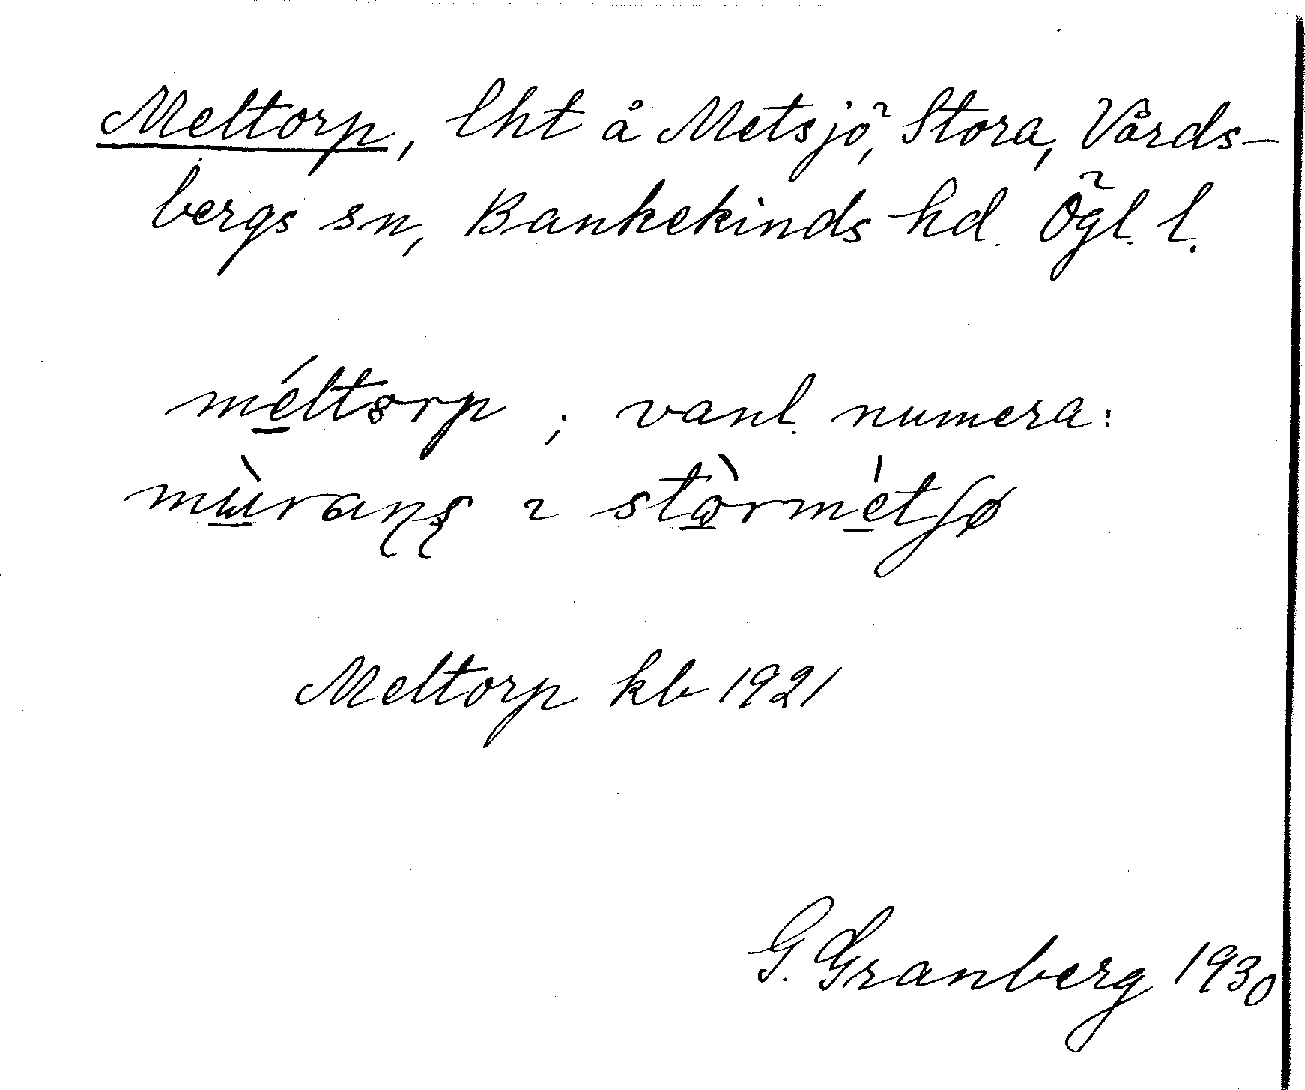 Meltorp, lht å Metsjö, Stora, Vårds-
bergs sn, Bankekinds hd. Ögl. l.
méltorp ; vanl. numera:
Meltorp kb 1921
G. Granberg 1930